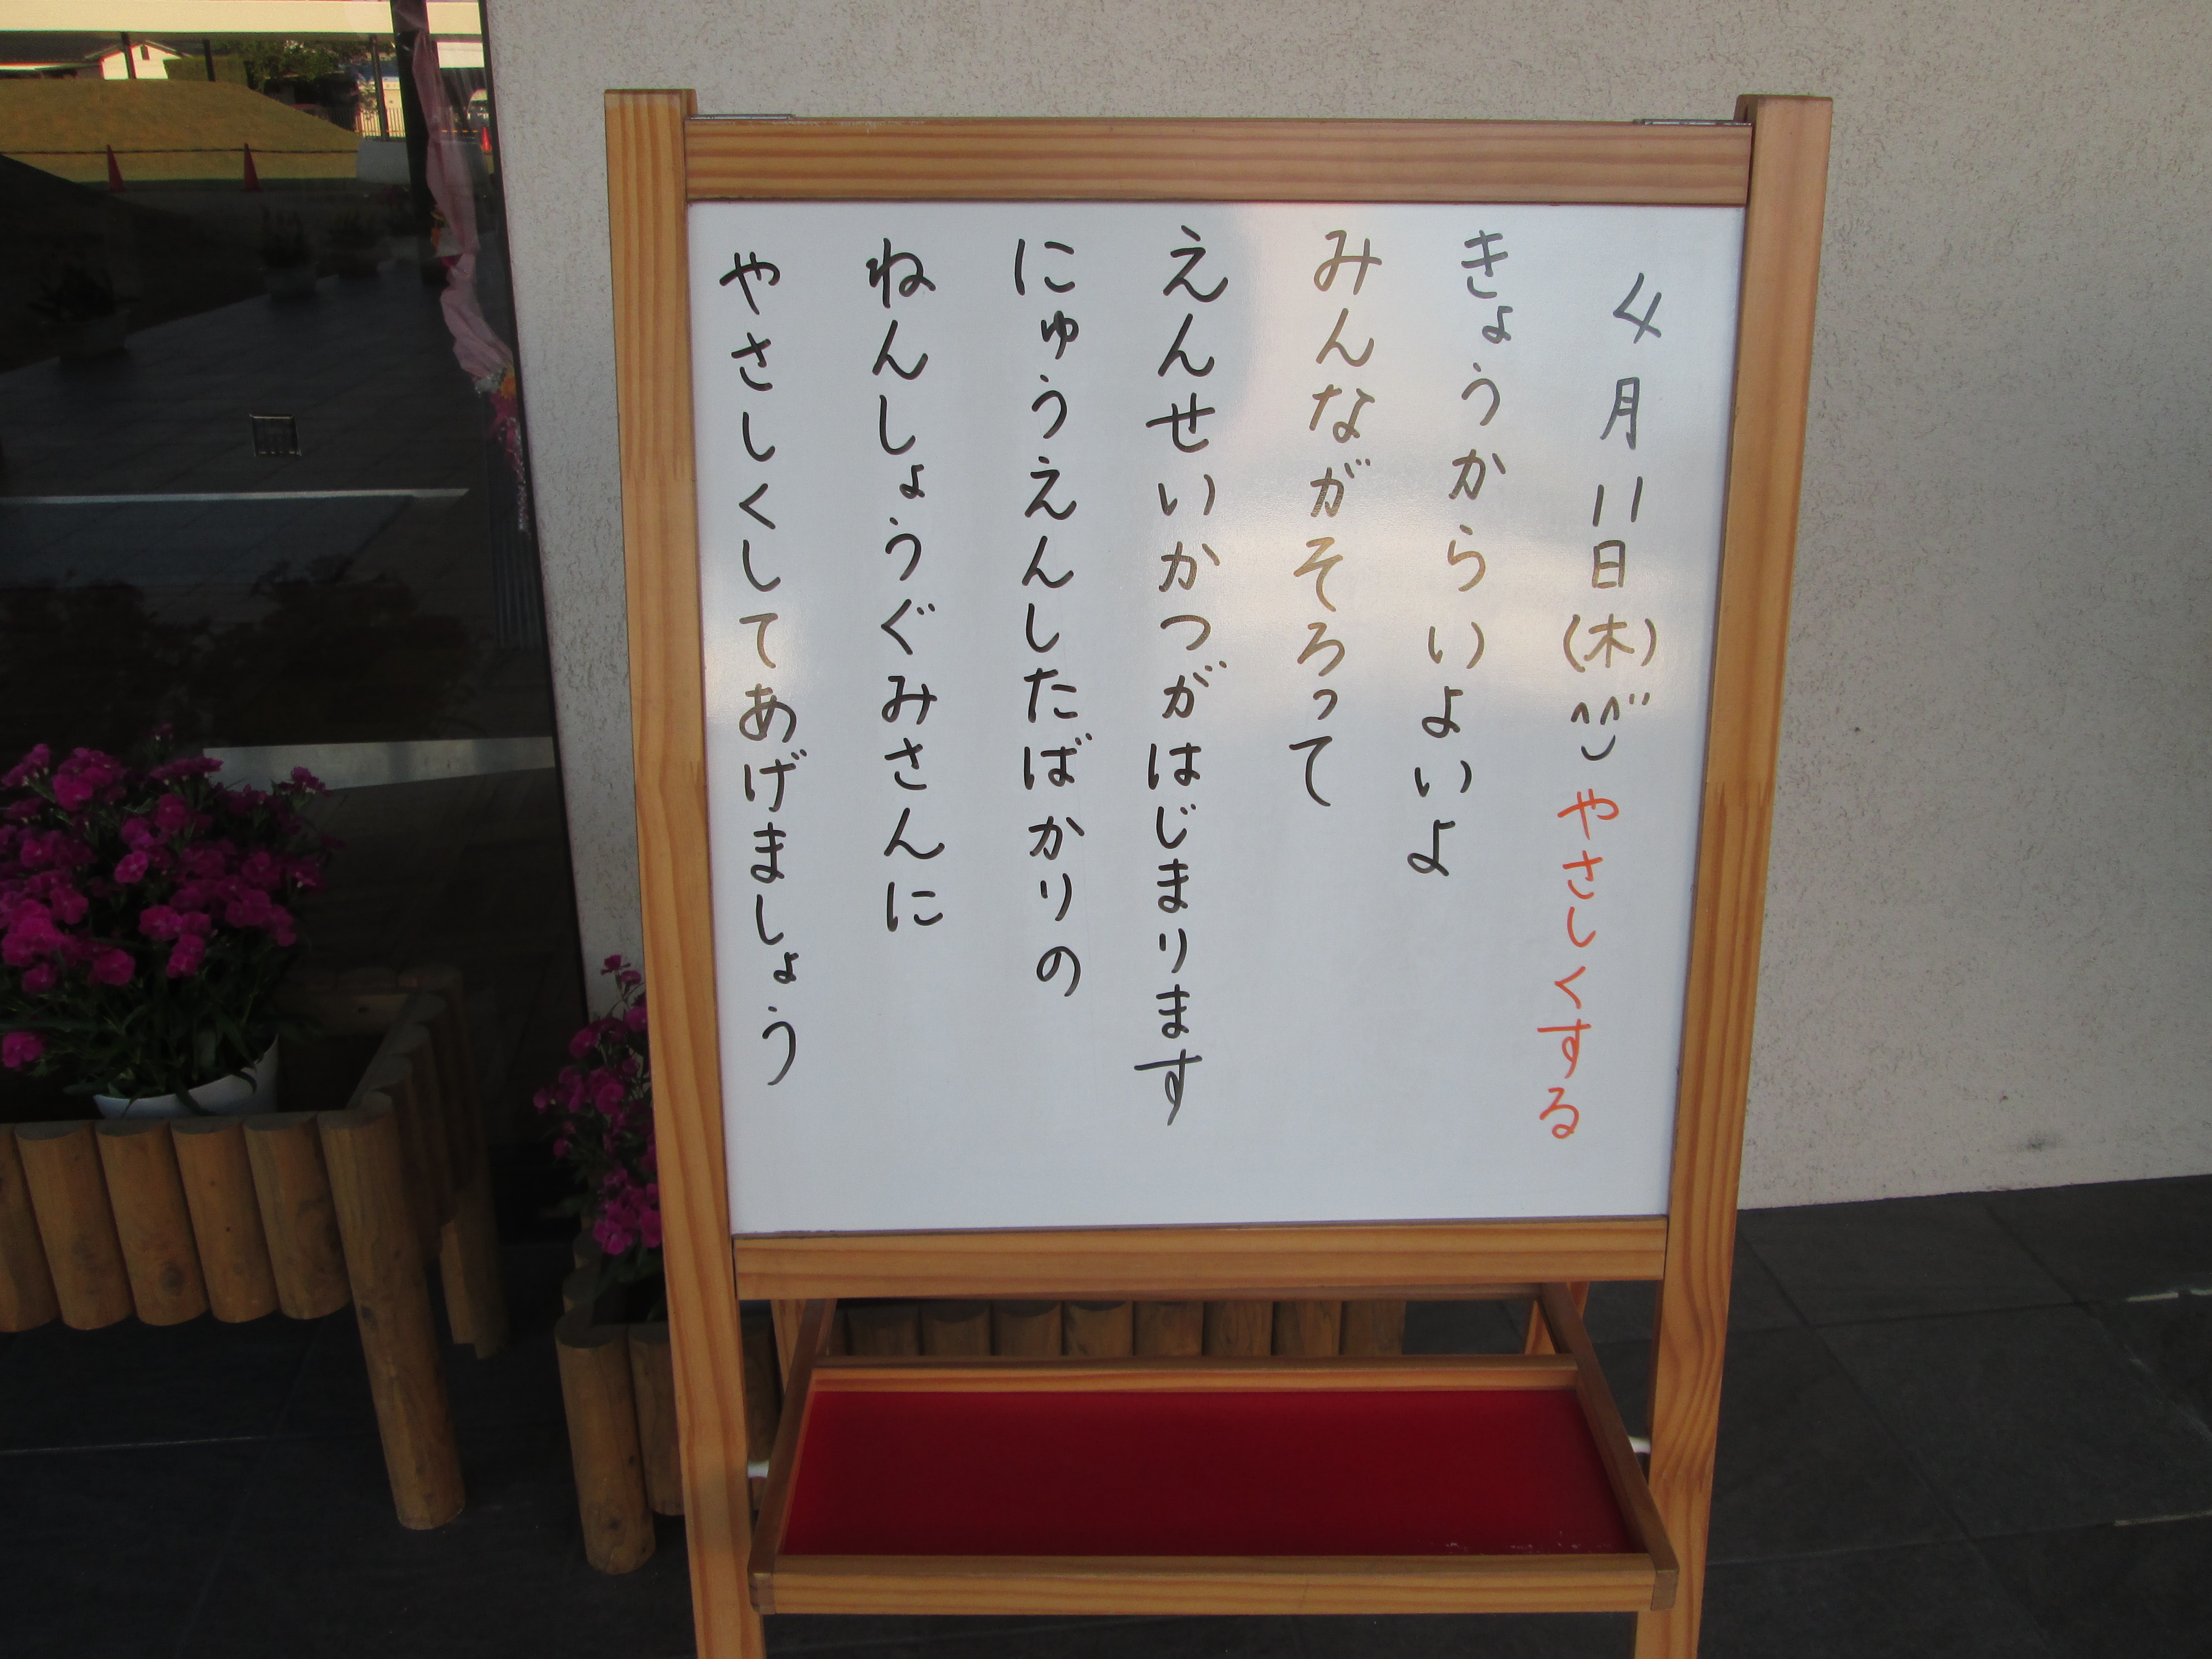 4月11日(木)^^ やさしくする
きょうからいよいよ
みんながそろって
えんせいかつがはじまります
にゅうえんしたばかりの
ねんしょうぐみさんに
やさしくしてあげましょう